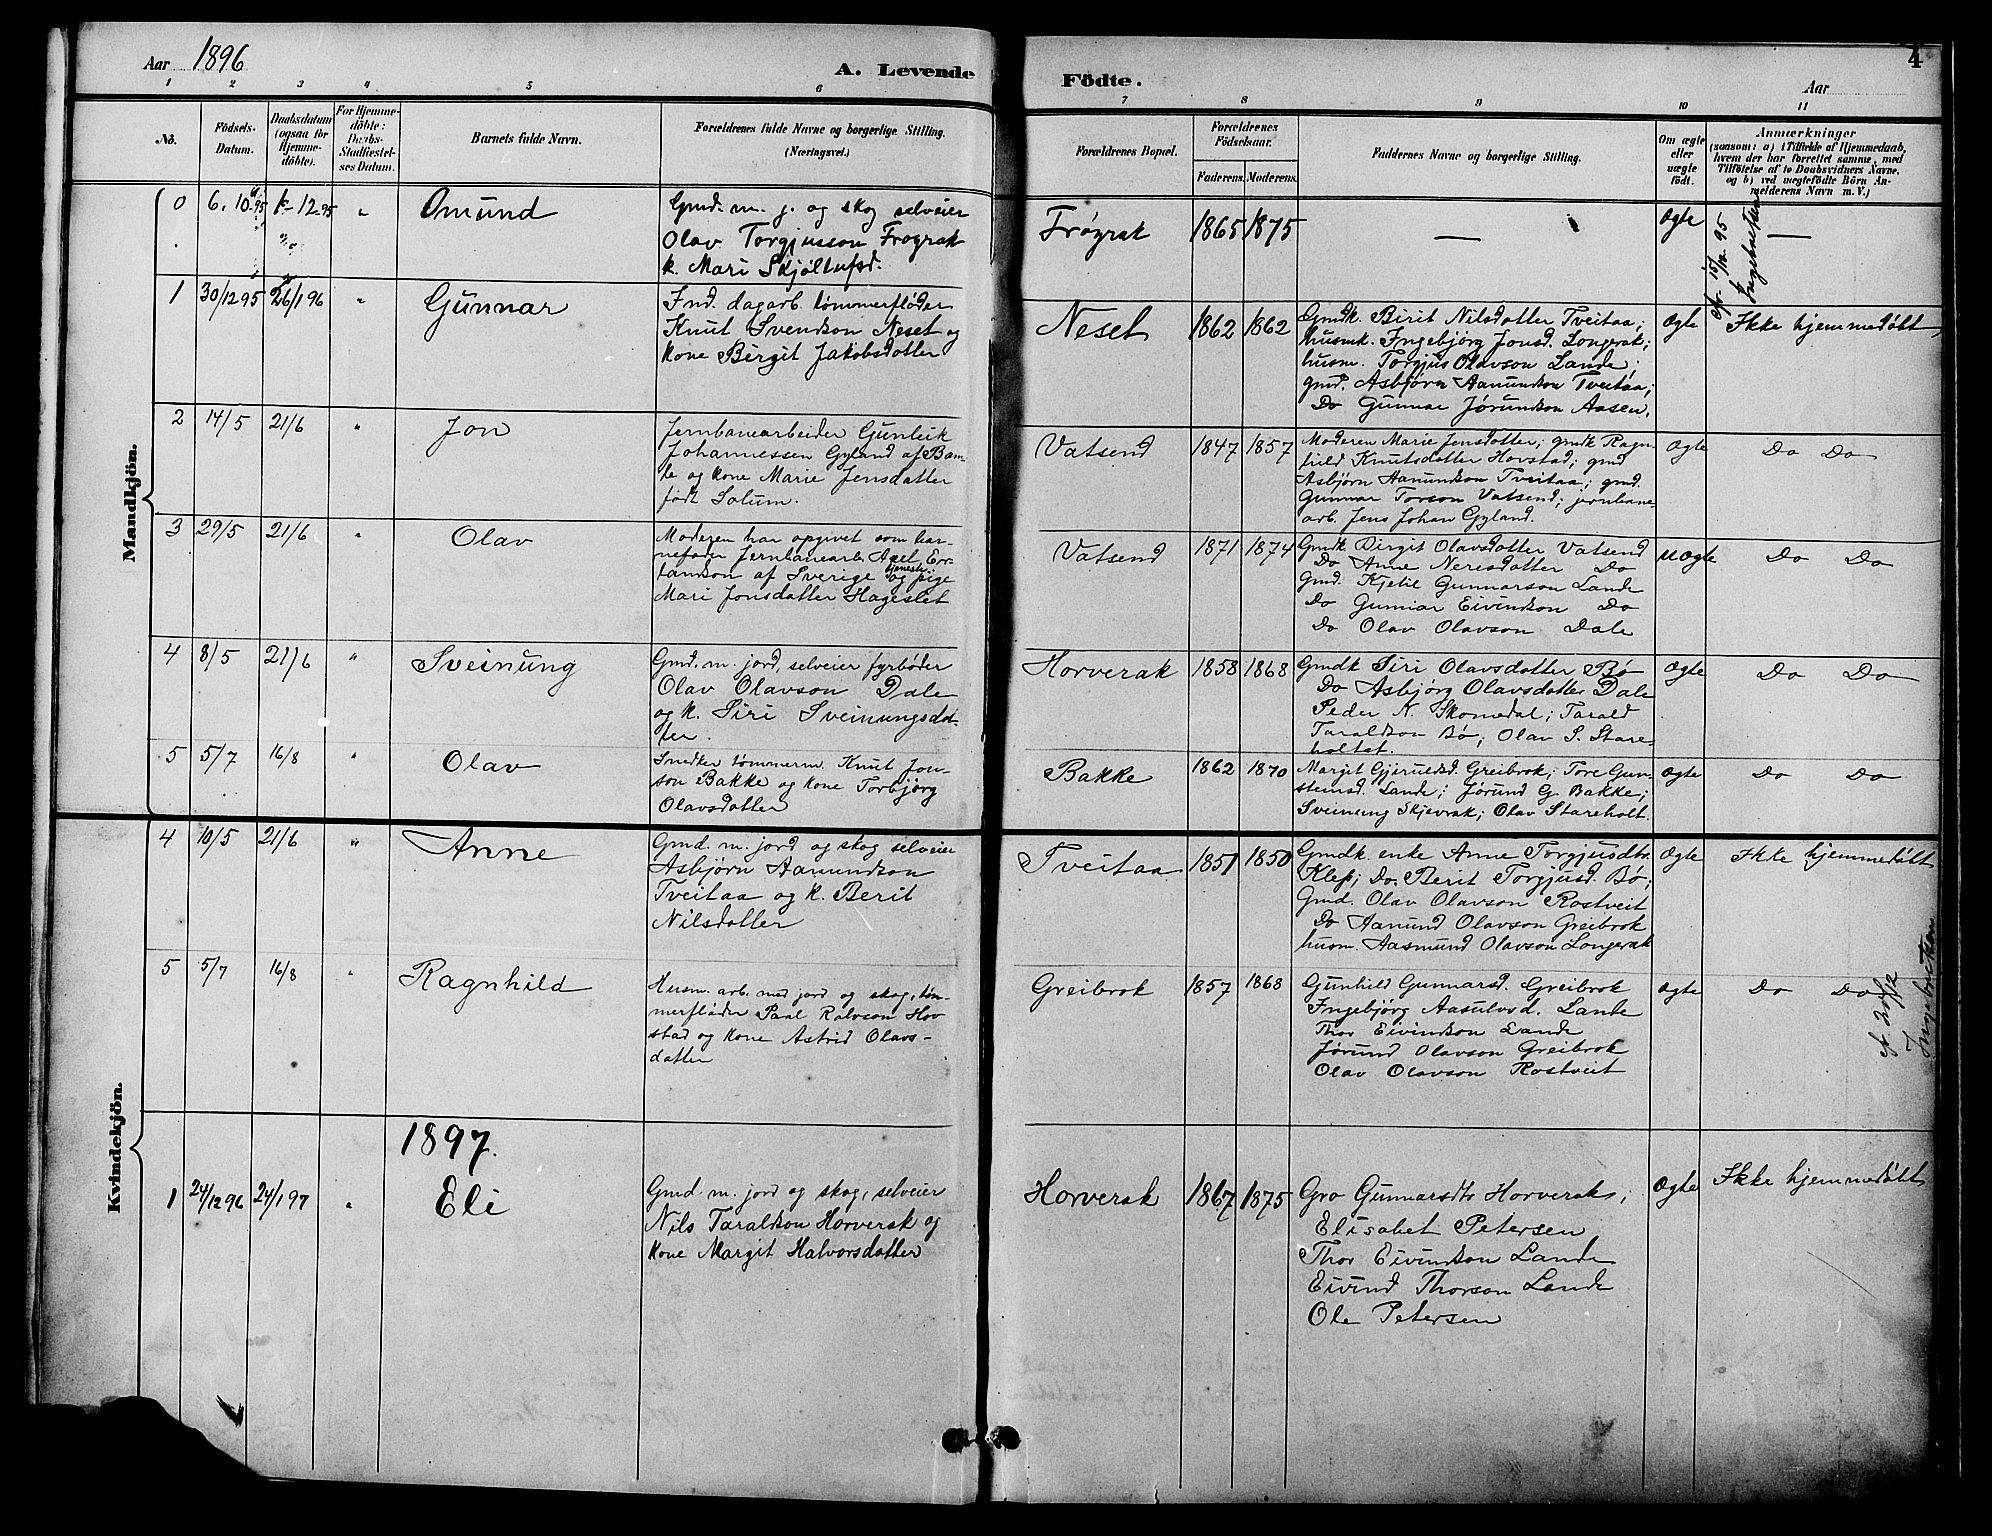 Aar 1896
A. Levende
1 2 3 4 5 6
No.
Fødsels-
Datum.
Daabsdatum
(ogsaa for
Hjemme-
døbte).
For Hjemme-
døbte:
Daabs-
Stadfæstel-
ses Datum.
Barnets fulde Navn.
Forældrenes fulde Navne og borgerlige Stilling.
(Næringsvei.)
Födte.
4
Aar
7 8 9 10 11
Forældrenes Bopæl.
Forældrenes
Fødselsaar.
Faderens. Moderens.
Faddernes Navne og borgerlige Stilling.
Om ægte
eller
uægte
født.
Anmærkninger
(saasom: a) i Tilfælde af Hjemmedaab,
hvem der har forrettet samme, med
Tilføielse af to Daabsvidners Navne,
og b) ved uægtefødte Børn An-
melderens Navn m. V.)
Mandkjön.
0 6. 10.95 12.95 " Omund
Gmd. m. j. og skog selveier
Olav Torgjusson Frøgrak
k. Mari Skjöltufsd.
Frøyrak 1865 1875 — Ægte —
cfr. 15/12.95
Ingebretsen
1 30/12 95 26/1 96 " Gunnar
Ind. dagarb. tømmerfløder
Knut Svendson Neset og
kone Birgit Jakobsdotter
Neset 1862 1862
Gmdk. Birit Nilsdotter Tveitaa;
husmk. Ingebjörg Jonsd. Longerak;
husm. Torgjus Olavson Lande;
gmd. Asbjörn Aanundson Tveitaa;
Do Gunnar Jørundson Aasen.
Ægte Ikke hjemmedøbt
2 14/5 21/6 " Jon
Jernbanearbeider Gunleik
Johannessen Gyland af Bam-
le og kone Marie Jensdatter
født Solum.
Vatsend 1847 1857
Moderen Marie Jensdotter; gmdk Ragn-
hild Knutsdatter Hovstad; gmd
Asbjörn Aanundson Tveitaa; gmd.
Gunnar Torson Vatsend; jernbane-
arb. Jens Johan Gyland.
Ægte Do Do
3 29/5 21/6 " Olav
Moderen har opgivet som bar-
nefader Jernbanearb Axel Er-
landson af Sverige og tjeneste-
pige
Mari Jonsdatter Hageslet
Vatsend 1871 1874
Gmdk Birgit Olavsdotter Vatsend
Do Anne Neresdotter Do
Gmd. Kjetil Gunnarson Lande
Do Gunnar Eivindson Do
Do Olav Olavson Dale
uægte Do Do
4 8/5 21/6 " Sveinung
Gmd. m. jord, selveier fyrbøder
Olav Olavson Dale
og k. Siri Sveinungsdot-
ter.
Horverak 1858 1868
Gmdk Siri Olavsdotter Bø
Do Asbjörg Olavsdotter Dale
Peder N. Skomedal; Tarald
Taraldson Bø; Olav S. Stare-
holtet.
Ægte Do Do
5 5/7 16/8 " Olav
Snedker tømmerm. Knut Jon-
son Bakke og kone Torbjörg
Olavsdatter
Bakke 1862 1870
Margit Gjeruldsd. Greibrok; Tore Gun-
steinsd. Lande; Jørund G. Bakke;
Sveinung Skjevrak; Olav Stareholt.
Ægte Do Do
Kvindekjön.
4 10/5 21/6 " Anne
Gmd. m. jord og skog selveier
Asbjörn Aanundson
Tveitaa og k. Berit
Nilsdotter
Tveitaa 1851 1850
Gmdk. enke Anne Torgjusdtr.
Klep; Do. Berit Torgjusd. Bø;
Gmd. Olav Olavson Rostveit
Do Aanund Olavson Greibrok
husm. Aasmund Olavson Longerak
Ægte Ikke hjemmedøbt
5 5/7 16/8 " Ragnhild
Husm. arb. med jord og skog, töm-
merfløder Paal Rolvson Hov
stad og kone Astrid Olavs-
datter
Greibrok 1857 1868
Gunhild Gunnarsd. Greibrok
Ingebjörg Aasulvsd. Lande
Thor Eivindson Lande
Jørund Olavson Greibrok
Olav Olavson Rostveit
Ægte Do Do
Ingebretsen
1897.
1 24/12 96 24/1 97 " Eli
Gmd. m. jord og skog, selveier
Nils Taraldson Horverak og
kone Margit Halvorsdatter
Horverak 1867 1875
Gro Gunnarsdtr Horverak;
Elisabet Petersen
Thor Eivindson Lande
Eivind Thorson Lande
Ole Petersen
Ægte Ikke hjemmedøbt